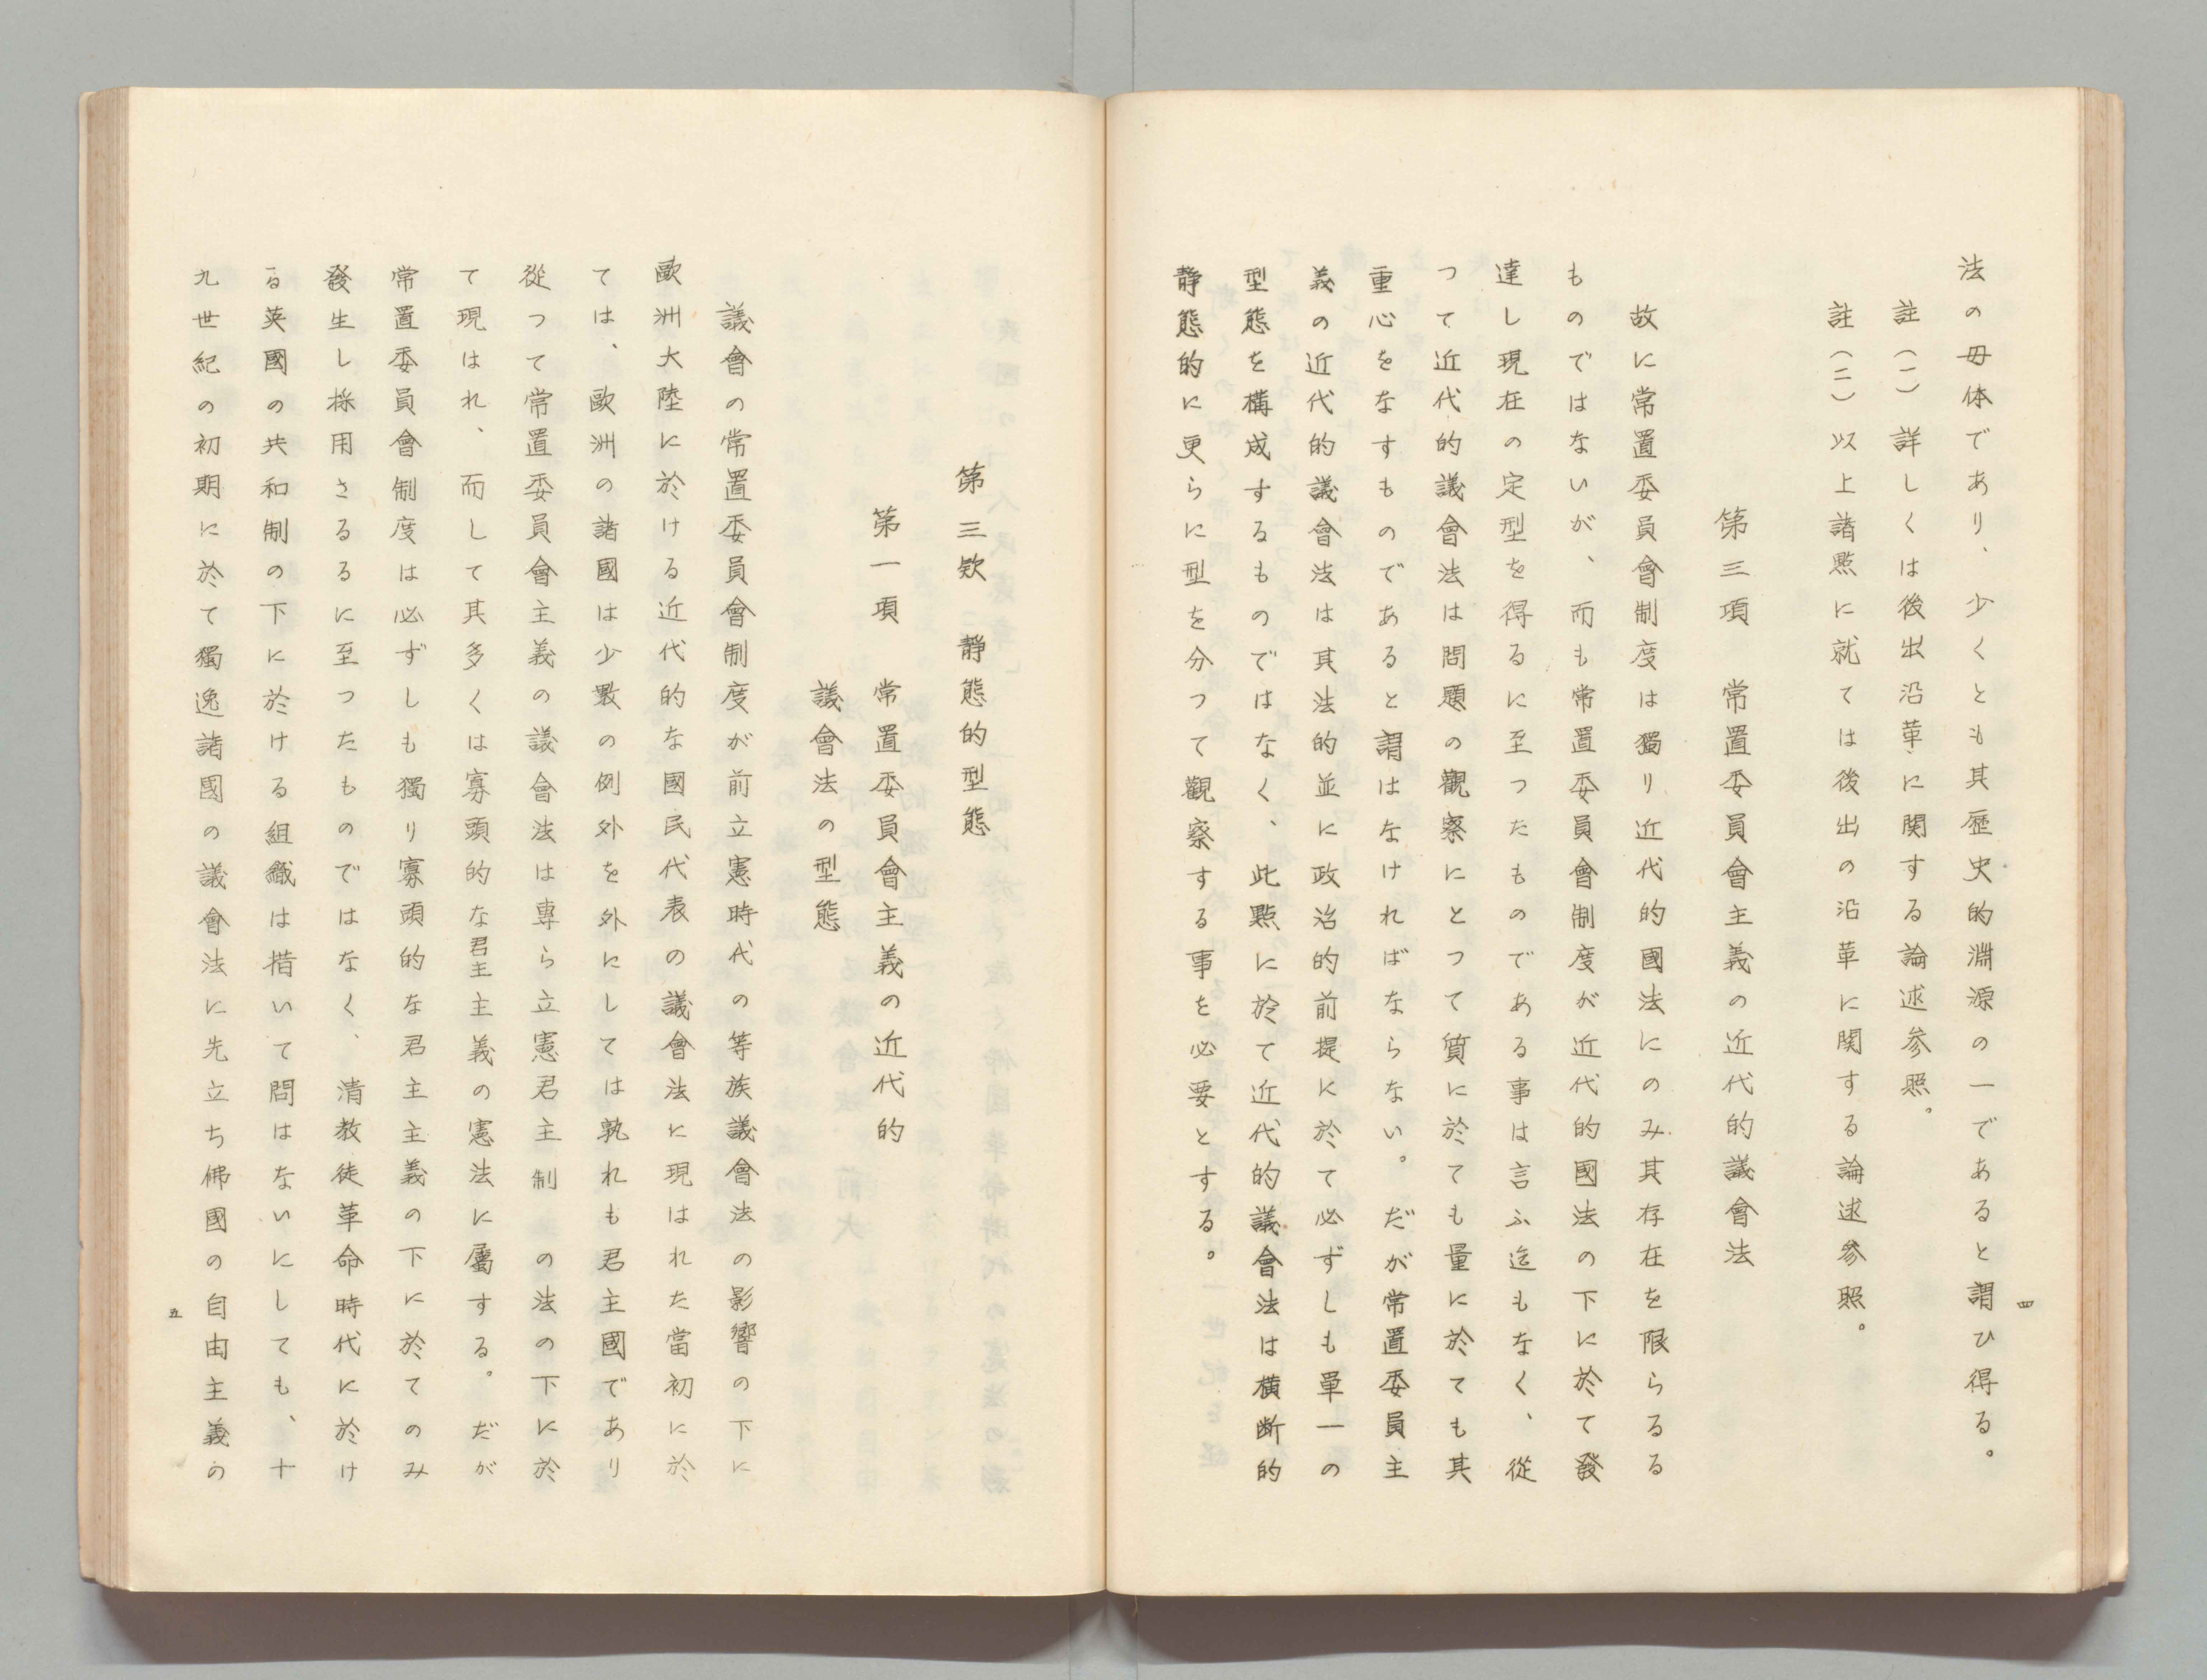 法の母体であり、少くとも其歴史的淵源の一であると謂ひ得る。
註(一)詳しくは後出沿革に関する論述参照。
註(二)以上諸點に就ては後出の沿革に関する論述参照。
第三項　常置委員會主義の近代的議會法
故に常置委員會制度は獨り近代的國法にのみ其存在を限らるる
ものではないが、而も常置委員會制度が近代的國法の下に於て發
達し現在の定型を得るに至つたものである事は言ふ迄もなく、從
つて近代的議會法は問題の觀察にとつて質に於ても量に於ても其
重心をなすものであると謂はなければならない。だが常置委員主
義の近代的議會法は其法的並に政治的前提に於て必ずしも單一の
型態を構成するものではなく、此點に於て近代的議會法は横断的
静態的に更らに型を分つて觀察する事を必要とする。
四
第三欵　静態的型態
第一項　常置委員會主義の近代的
議會法の型態
議會の常置委員會制度が前立憲時代の等族議會法の影響の下に
歐洲大陸に於ける近代的な國民代表の議會法に現はれた當初に於
ては、歐洲の諸國は少数の例外を外にしては孰れも君主國であり
從つて常置委員會主義の議會法は專ら立憲君主制の法の下に於
て現はれ、而して其多くは寡頭的な君主主義の憲法に屬する。だが
常置委員會制度は必ずしも獨り寡頭的な君主主義の下に於てのみ
發生し採用さるるに至つたものではなく、清教徒革命時代に於け
る英國の共和制の下に於ける組織は措いて問はないにしても、十
九世紀の初期に於て獨逸諸國の議會法に先立ち佛國の自由主義の
五